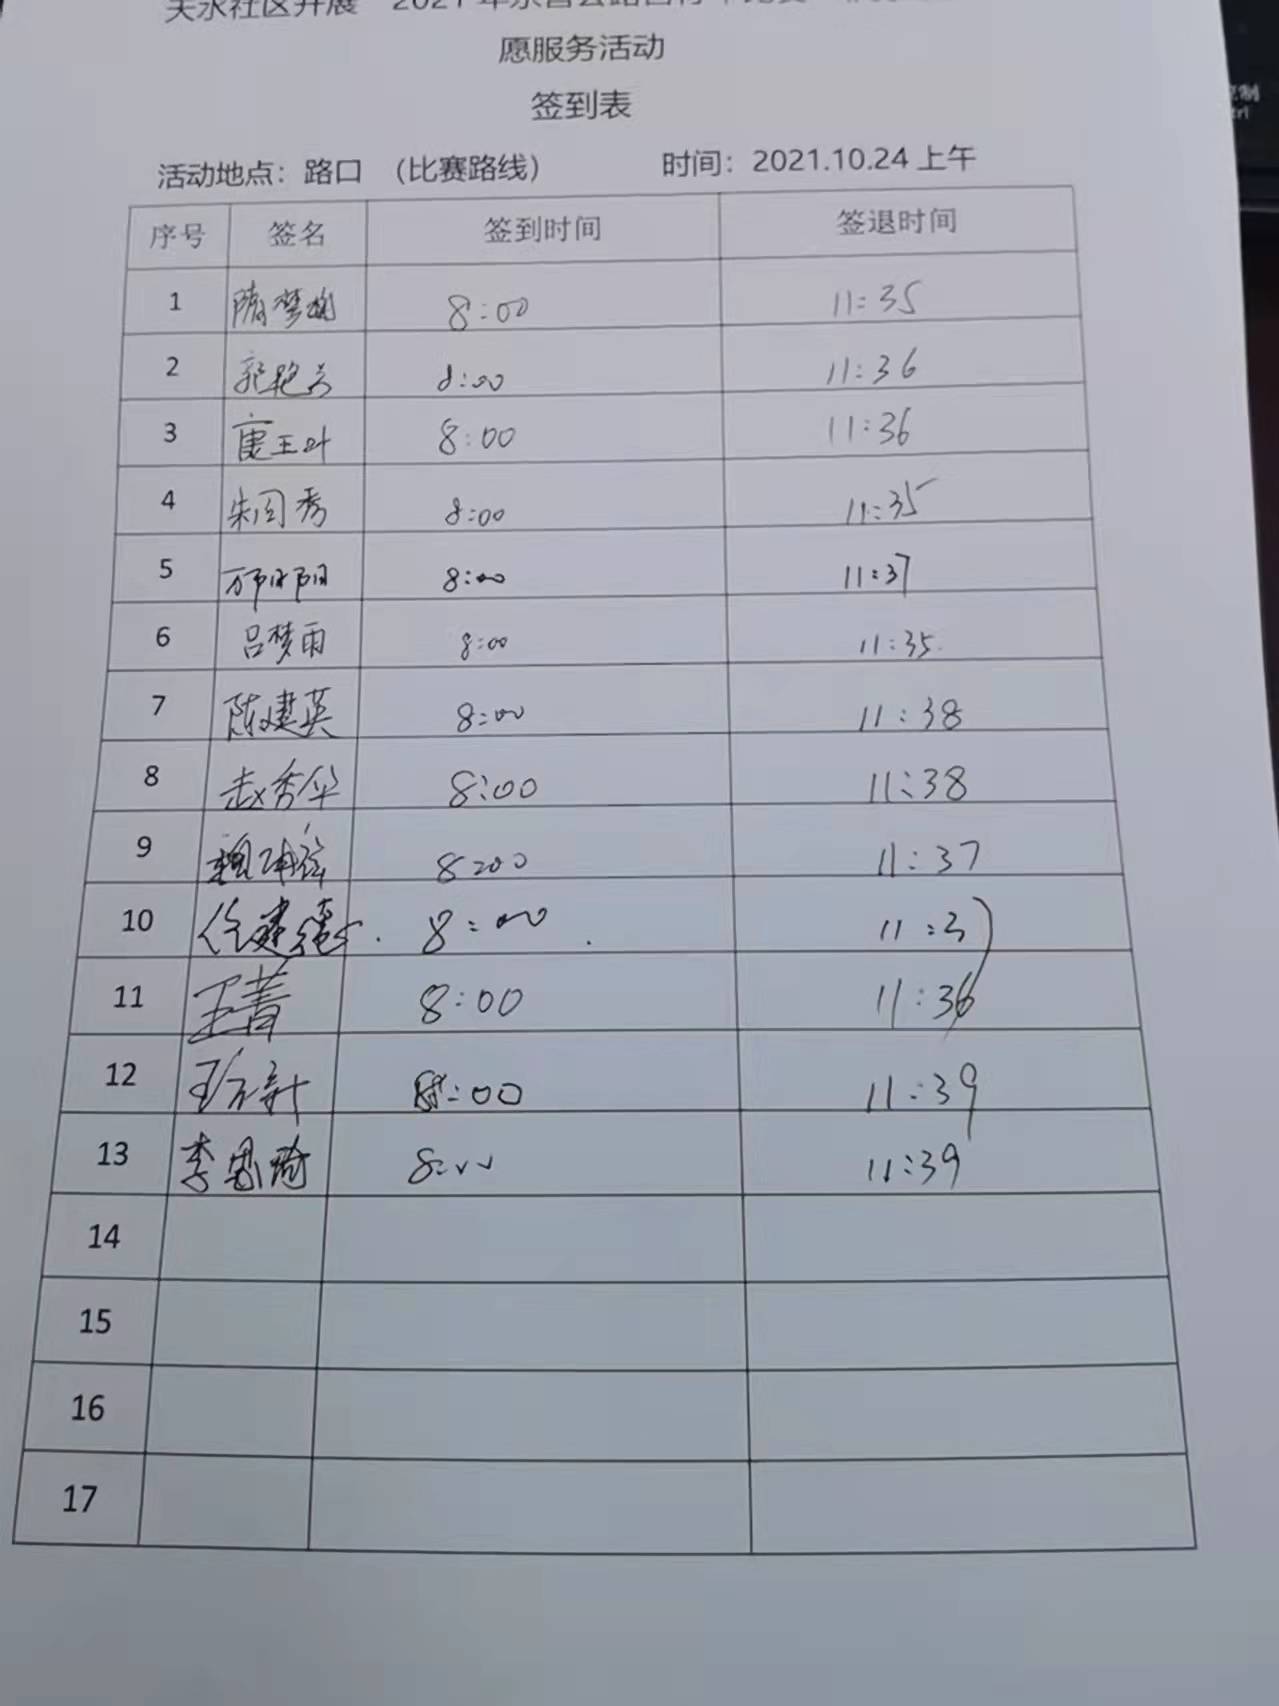 愿服务活动
签到表
活动地点：路口 （比赛路线） 时间：2021.10.24 上午
序号 签名 签到时间 签退时间
1 8:00 11:35
2 8:00 11:36
3 唐王叶 8:00 11:36
4 朱闰秀 8:00 11:35
5 8:00 11:37
6 吕梦雨 8:00 11:35
7 陈建英 8:00 11:38
8 赵秀华 8:00 11:38
9 8:00 11:37
10 8:00 11:37
11 王菁 8:00 11:36
12 8:00 11:39
13 李思琦 8:00 11:39
14
15
16
17